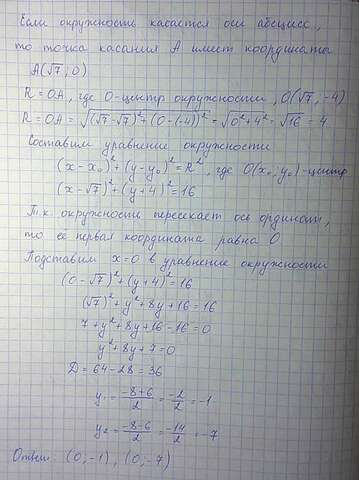 Если окружность касается оси абсцисс,
то точка касания А имеет координаты
A(√7; 0)
R = OA, где О-центр окружности, O(√7; -4)
R = OA = √((√7-√7)²+(0-(-4))²) = √(0²+4²) = √16 = 4
Составим уравнение окружности
(x-x₀)²+(y-y₀)²=R², где O(x₀;y₀)-центр
(x-√7)²+(y+4)²=16
Т.к. окружность пересекает ось ординат,
то её первая координата равна 0
Подставим x=0 в уравнение окружности
(0-√7)²+(y+4)²=16
(√7)²+y²+8y+16=16
7+y²+8y+16-16=0
y²+8y+7=0
D = 64-28 = 36
y₁ = (-8+6)/2 = -2/2 = -1
y₂ = (-8-6)/2 = -14/2 = -7
Ответ: (0;-1), (0;-7)